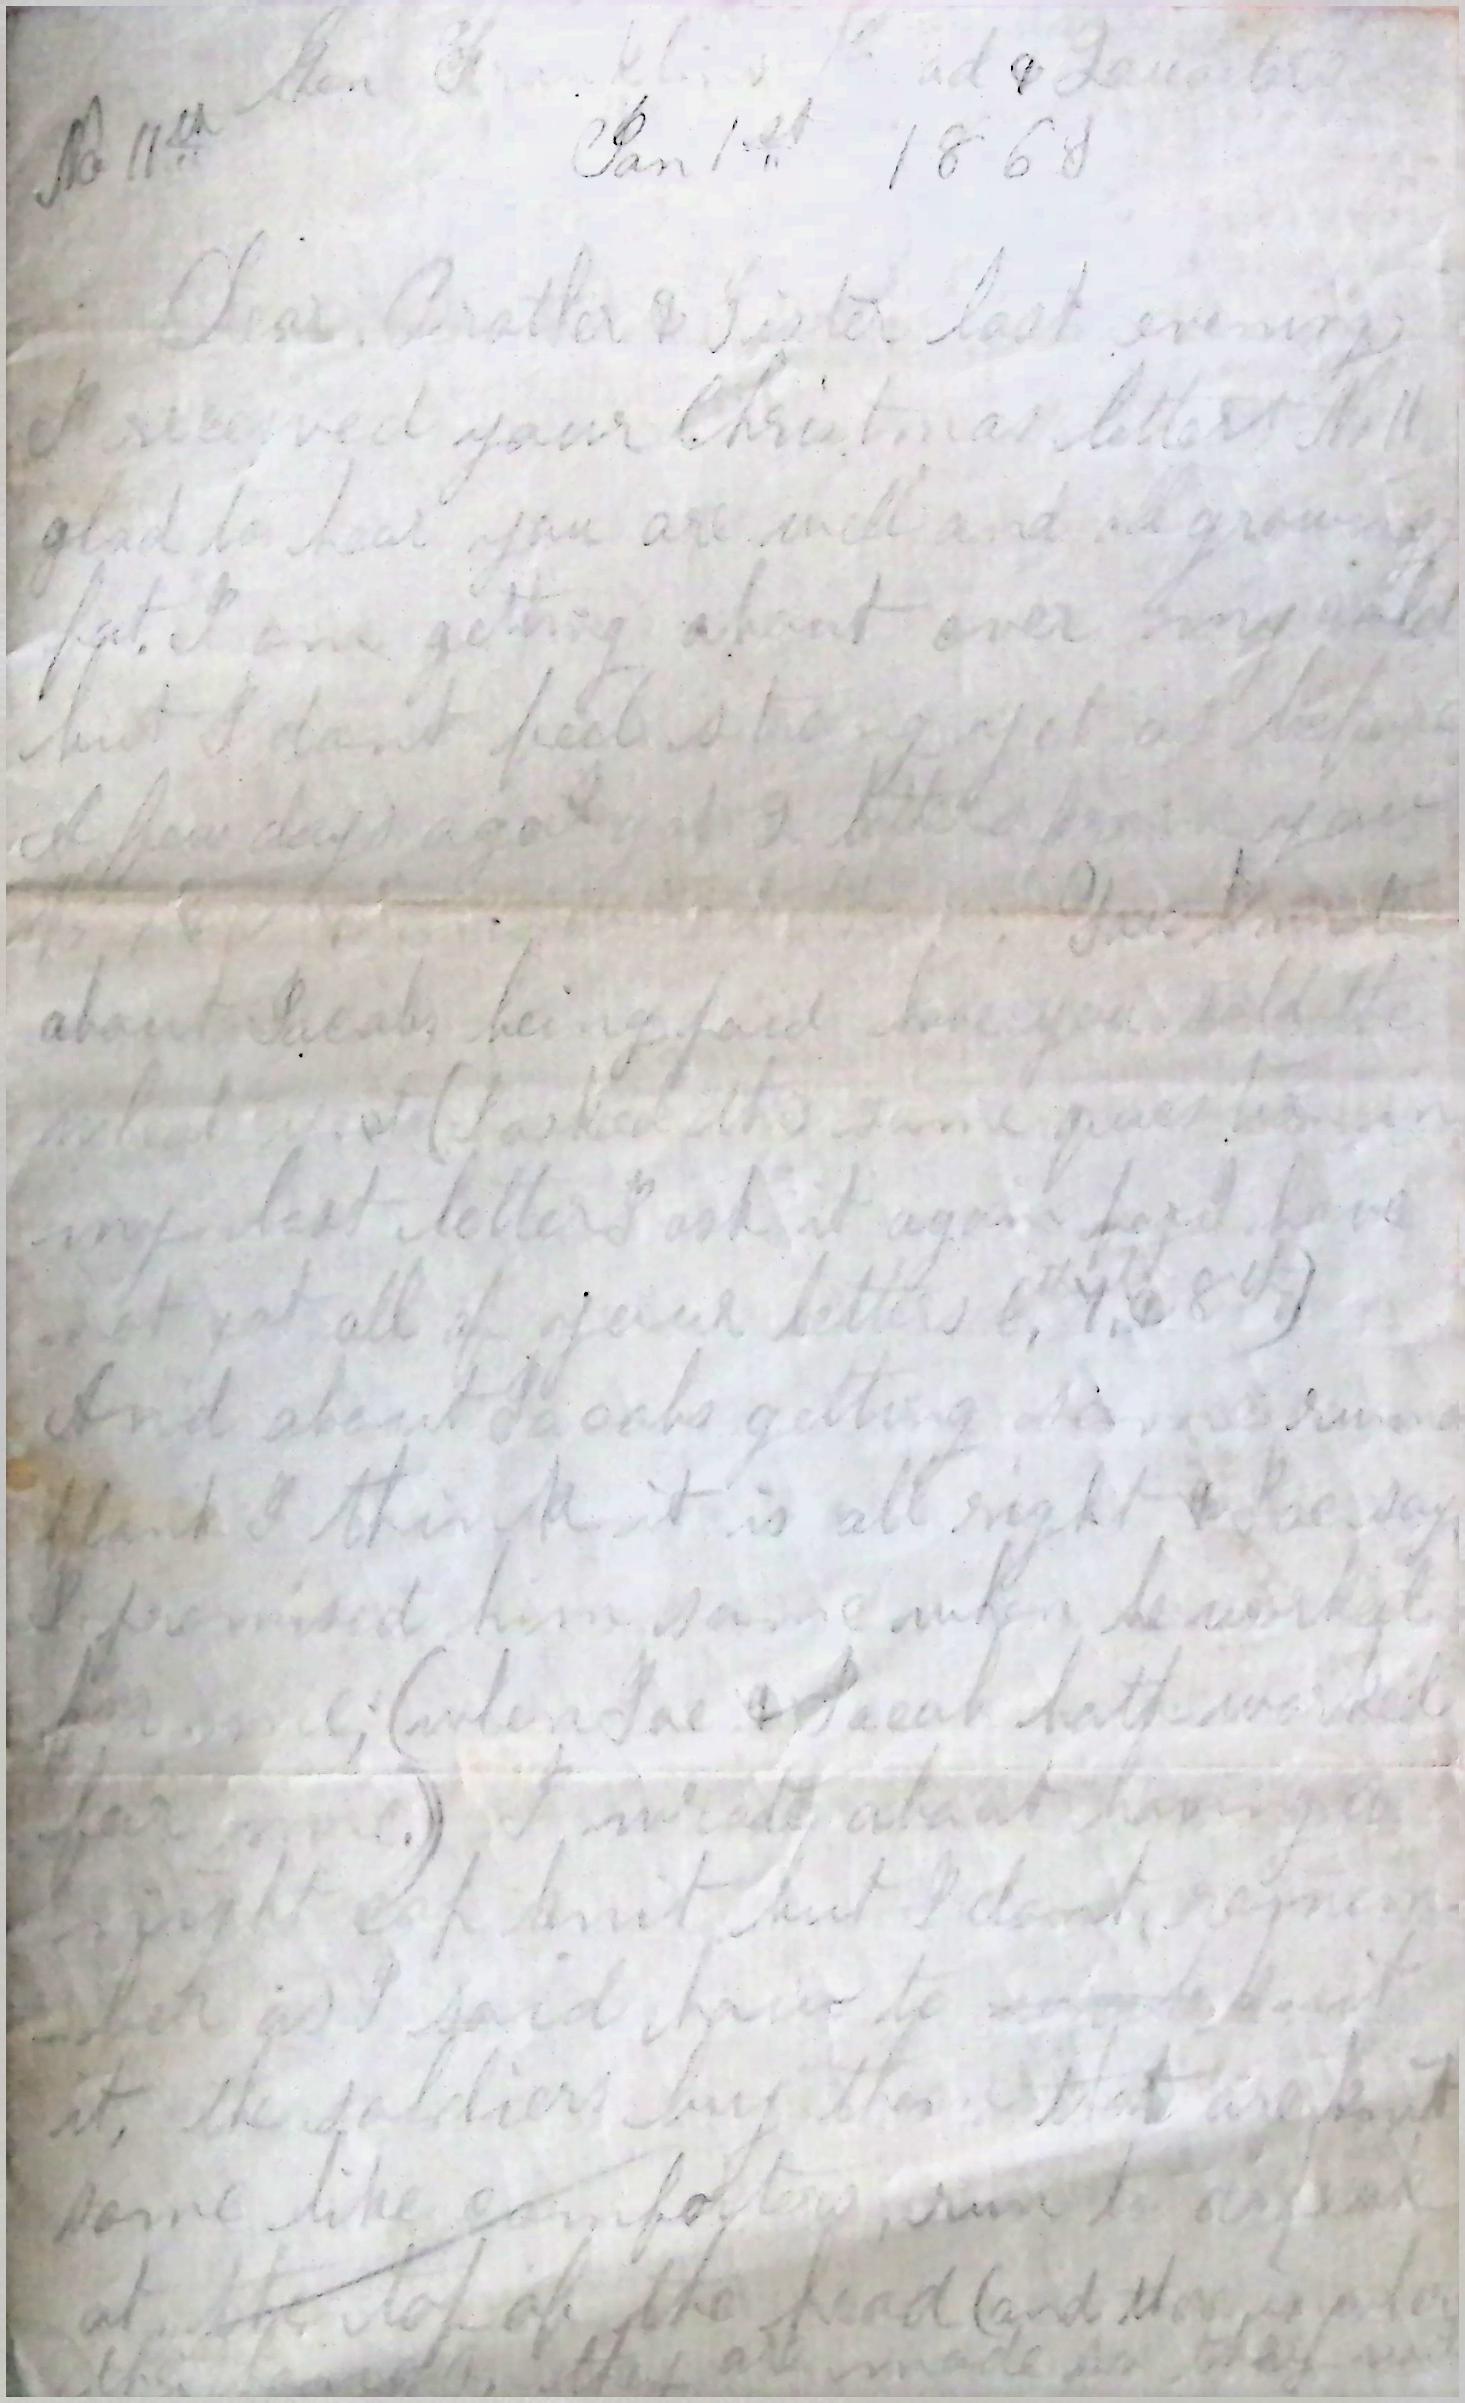 Gen Franklins Head Quarters
No 11th Jan 1st 1863
Dear Brother & Sister last evening
I receyved your Christmas letter No 11
glad to hear you are well and all growing
fat. I am getting about over my cold
but I dont feel strong yet as before
A few days ago I got 2 letters from you
about Jacobs being paid have you sold the
wheat yet (I asked the same question in
my last letter I ask it again for I have
not got all of your letters 6th, 7th, & 8th)
And about Jacobs getting some
I think it is all right & Joe say
I promised him some when he worked
for me; (when Joe & Jacob both worked
for me.) I wrote about having a
night cap knit but I dont, remem
-ber as I said how to knit
it, the soldiers buy them that are knit
some like comforters, run to a
at the top of the head (and
they are made so they